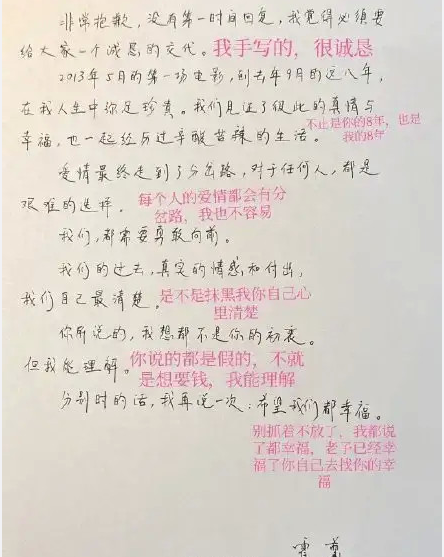 非常抱歉，没有第一时间回复，我觉得必须要
给大家一个诚恳的交代。我手写的，很诚恳
2013年5月的第一场电影，到去年9月的这八年，
在我人生中弥足珍贵。我们见证了彼此的真情与
不止是你的8年，也是
幸福，也一起经历过辛酸苦辣的生活。我的8年
爱情最终走到了分岔路，对于任何人，都是
艰难的选择。每个人的爱情都会有分
岔路，我也不容易
我们，都需要勇敢向前。
我们的过去，真实的情感和付出，
我们自己最清楚。是不是抹黑我你自己心
里清楚
你所说的，我想都不是你的初衷。
但我能理解。你说的都是假的，不就
是想要钱，我能理解
分别时的话，我再说一次：希望我们都幸福。
别抓着不放了，我都说
了都幸福，老子已经幸
福了你自己去找你的幸
福